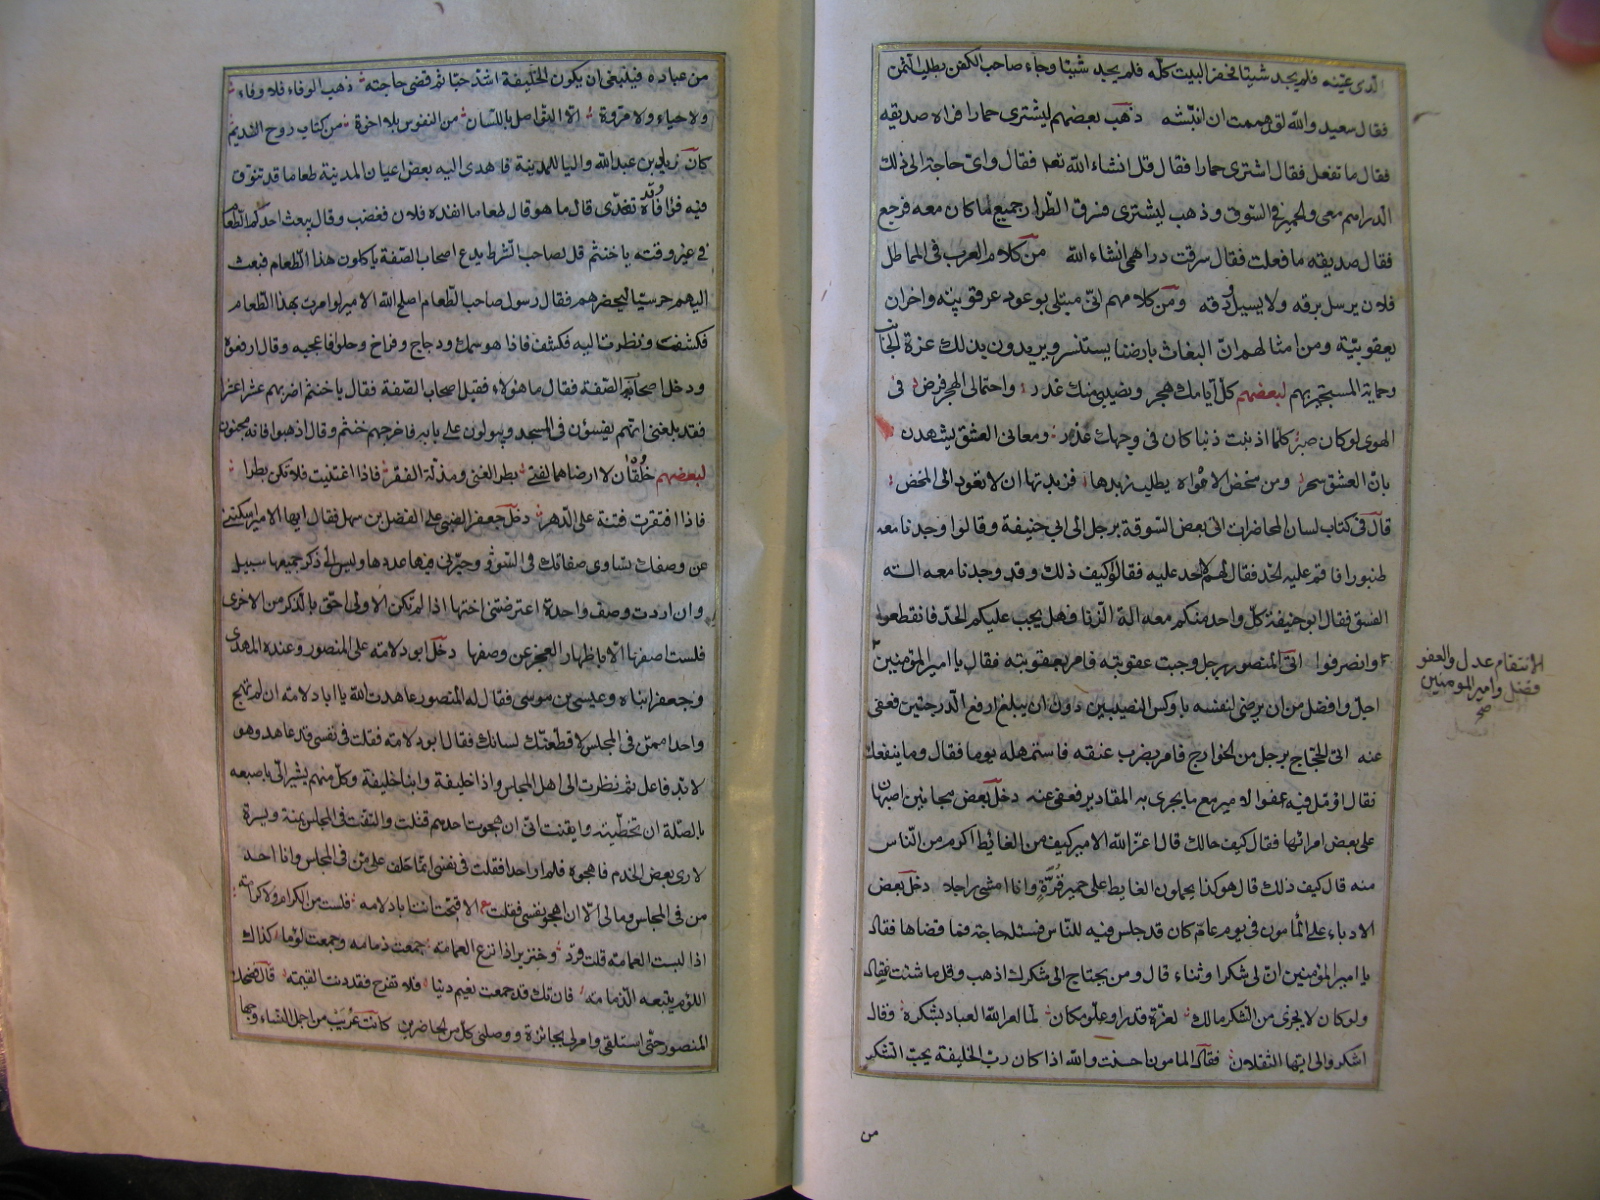 الذى عينه فلم يجد شيئا فحفر البيت كله فلم يجد شيئا وجاء صاحب الكفن يطلب الثمن
فقال سعيد والله لقد هممت ان انبشه ذهب بعضهم ليشترى حمارا فراه صديقه
فقال ما تفعل فقال اشترى حمارا فقال قل انشاء الله تعه فقال واى حاجة الى ذلك
الدراهم معى والحمير فى السوق وذهب ليشترى فسرق الطرار جميع ما كان معه فرجع
فقال صديقه ما فعلت فقال سرقت دراهمى انشاء الله من كلام العرب فى المماطل
فلان يرسل برقه ولا يسيل ودقه ومن كلامهم انى مبتلى بوعود عرقوبية واحزان
يعقوبية ومن امثالهم ان البغاث بارضنا يستنسر ويريدون بذلك عزة الجانب
وحماية المستجير بهم لبعضهم كل ايامك هجر ونصيبى منك غدر واحتمالى الهجر فرض فى
الهوى لو كان صبر كلما اذنبت ذنبا كان فى وجهك عذر ومعانى العشق يشهدن
بان العشق سحر ومن مخض الامواه يطلب زبدها فزبدتها ان لا تعود الى المخض
قال فى كتاب لسان المحاضرات اتى بعض السوقة برجل الى ابى حنيفة وقالوا وجدنا معه
طنبورا فاقم عليه الحد فقال لهم لا حد عليه فقالوا كيف ذلك وقد وجدنا معه الة
الفسق فقال ابو حنيفة كل واحد منكم معه الة الزنا فهل يجب عليكم الحد فانقطعوا
وانصرفوا اتى المنصور برجل وجبت عقوبته فامر بعقوبته فقال يا امير المؤمنين
الانتقام عدل والعفو
فضل وامير المومنين
صح
اجل وافضل من ان يرضى لنفسه باوكس النصيبين دون ان يبلغ ارفع الدرجتين فعفى
عنه اتى الحجاج برجل من الخوارج فامر بضرب عنقه فاستمهله يوما فقال وما ينفعك
فقال اؤمل فيه عفو الامير مع ما يجرى به المقادير فعفى عنه دخل بعض مجانين اصبهان
على بعض امرائها فقال كيف حالك قال اعز الله الامير كيف من الغائط اكرم من الناس
منه قال كيف ذلك قال هو كذا يحملون الغايط على حمير فرة وانا امشى راجلا دخل بعض
الادباء على المأمون فى يوم عام كان قد جلس فيه للناس فسئله حاجة فما قضاها فقال
يا امير المؤمنين ان لى شكرا وثناء قال ومن يحتاج الى شكرك اذهب وقل ما شئت فقال
ولو كان لا يجزى من الشكر مالك لعزة قدر او علو مكان لما امر الله العباد بشكره وقال
اشكروا لى ايها الثقلان فقال المامون احسنت والله اذا كان رب الخليفة يحب الشكر
من
من عباده فينبغى ان يكون الخليفة اشد حبا ثم قضى حاجته ذهب الوفاء فلا وفاء
ولا حياء ولا مروة الا التواصل باللسان من النفوس بلا اخوة من كتاب روح النديم
كان زياد بن عبد الله واليا للمدينة فاهدى اليه بعض اعيان المدينة طعاما قد تنوق
فيه فوافاه وقد تغدى قال ما هو قال طعاما انفذه فلان فغضب وقال يبعث احدكم الطعام
فى غير وقته يا خنثم قل لصاحب الشرط يدع اصحاب الصفة ياكلون هذا الطعام فبعث
اليهم حرسيا ليحضرهم فقال رسول صاحب الطعام اصلح الله الامير لو امرت بهذا الطعام
فكشفت ونظرت اليه فكشف فاذا هو سمك ودجاج وفراخ وحلوا فاعجبه وقال ارفعوه
ودخل اصحاب الصفة فقال ما هؤلاء فقيل اصحاب الصفة فقال يا خنثم اضربهم عشرا عشرا
فقد بلغنى انهم يفسؤن فى المسجد ويبولون على بابه فاخرجهم خنثم وقال اذهبوا فانه مجنون
لبعضهم خلقان لا ارضاهما لفتى بطر الغنى ومذلة الفقر فاذا اغتنيت فلا تكن بطرا
فاذا افتقرت فتنه على الدهر دخل جعفر الضبى على الفضل بن سهل فقال ايها الامير اسكتنى
عن وصفك تساوى صفاتك فى السوق وحيرنى فيها عددها وليس الى ذكر جميعها سبيل
وان اردت وصف واحدة اعترضتنى اختها اذا لم تكن الاولى احق بالذكر من الاخرى
فلست اصفها الا باظهار العجز عن وصفها دخل ابو دلامه على المنصور وعنده المهدى
وجعفر ابناه وعيسى بن موسى فقال له المنصور عاهدت الله يا ابا دلامه ان لم تهج
واحدا ممن فى المجلس لاقطعنك لسانك فقال ابو دلامه فقلت فى نفسى قد عاهد وهو
لا بد فاعل ثم نظرت الى اهل المجلس واذا خليفة وابنا خليفة وكل منهم يشير الى باصبعه
بالصلة ان تخطيته وايقنت انى ان هجوت احدهم قتلت والتفت فى المجلس يمنة ويسرة
لارى بعض الخدم فاهجوه فلم ار احدا فقلت فى نفسى انما حلف على من فى المجلس وانا احد
من فى المجلس وما لى الا ان اهجو نفسى فقلت الا قبحت انت ابا دلامه فلست من الكرام ولا كرامه
اذا لبست العمامه قلت قرد وخنزير اذا نزع العمامه جمعت ذمامه وجمعت لؤما كذاك
اللؤم يتبعه الذمامه فان تك قد جمعت نعيم دنيا فلا تفرح فقد دنت القيمه قال فضحك
المنصور حتى استلقى وامر لى بجائزة ووصلنى كل من الحاضرين كانت عريب من اجمل النساء وجها